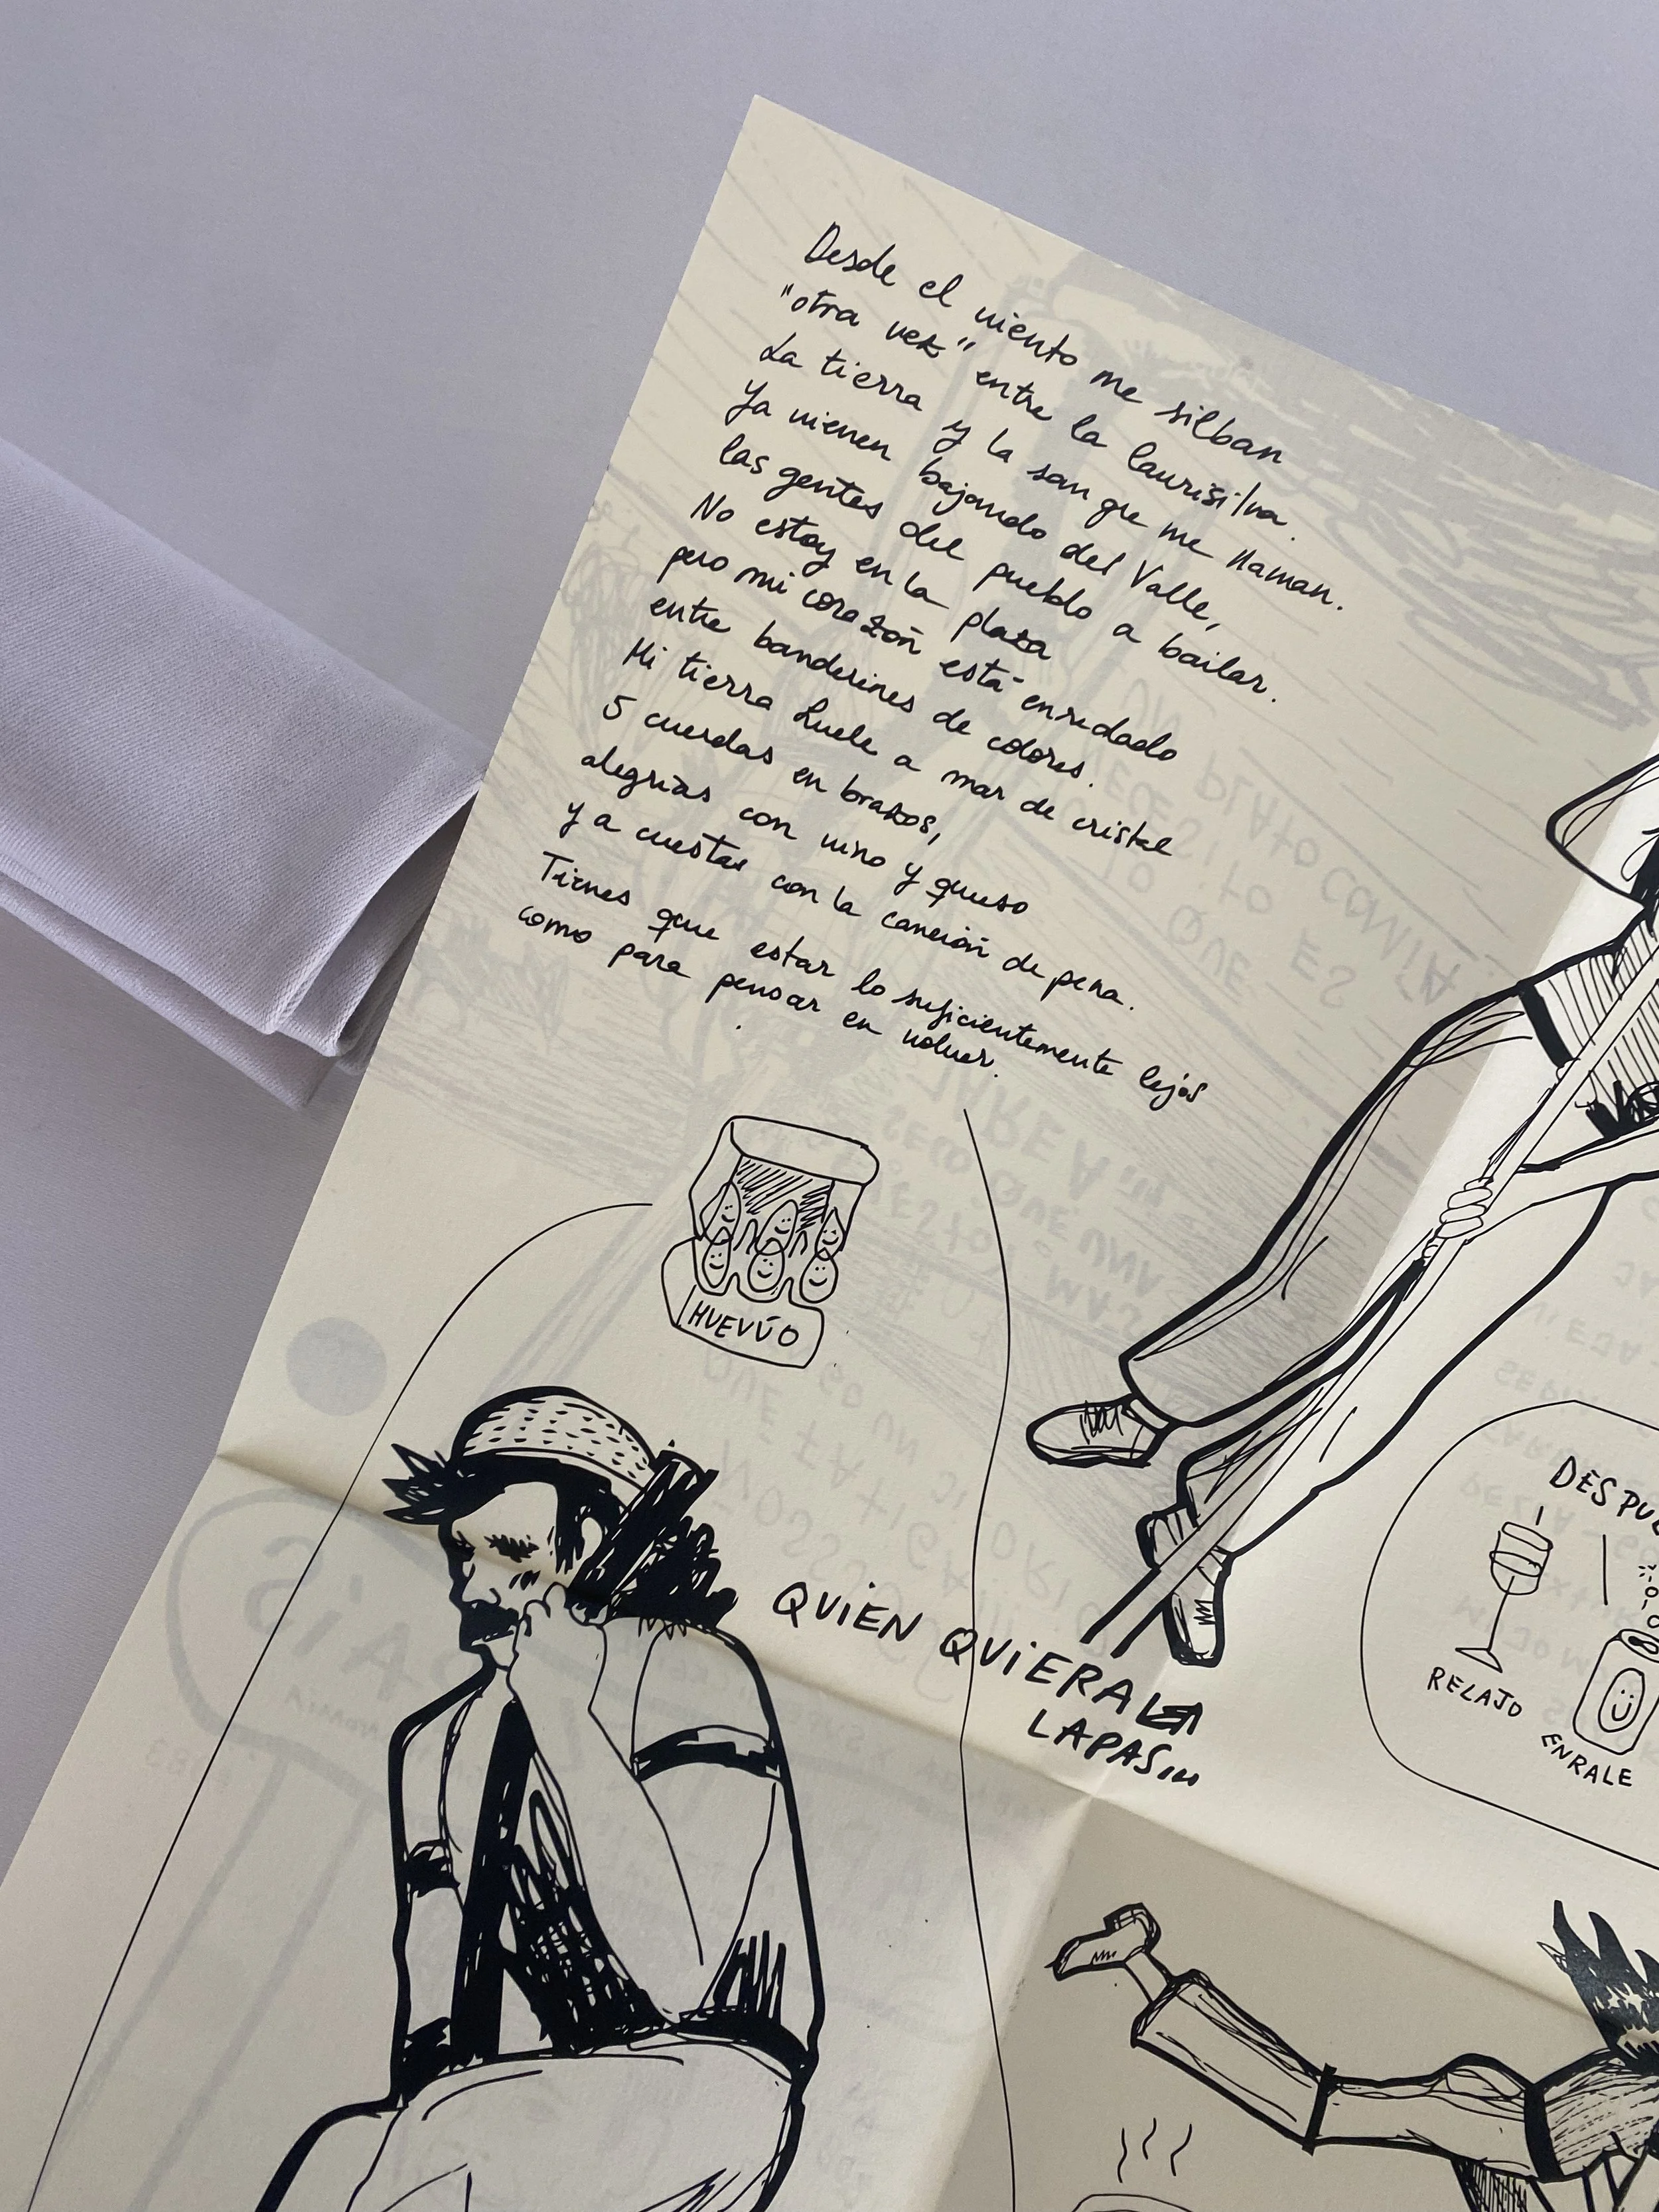 Desde el viento me silban
"otra vez" entre la laurisilva.
La tierra y la sangre me llaman.
Ya vienen bajando del Valle,
las gentes del pueblo a bailar.
No estoy en la plaza
pero mi corazón está enredado
entre banderines de colores.
Mi tierra huele a mar de cristal
5 cuerdas en brazos,
alegrías con vino y queso
y a cuestas con la canción de pena.
Tienes que estar lo suficientemente lejos
como para pensar en volver.
HUEVÚO
QUIÉN QUIERA
LAPAS...
DESPUÉ
RELAJO
ENRALE